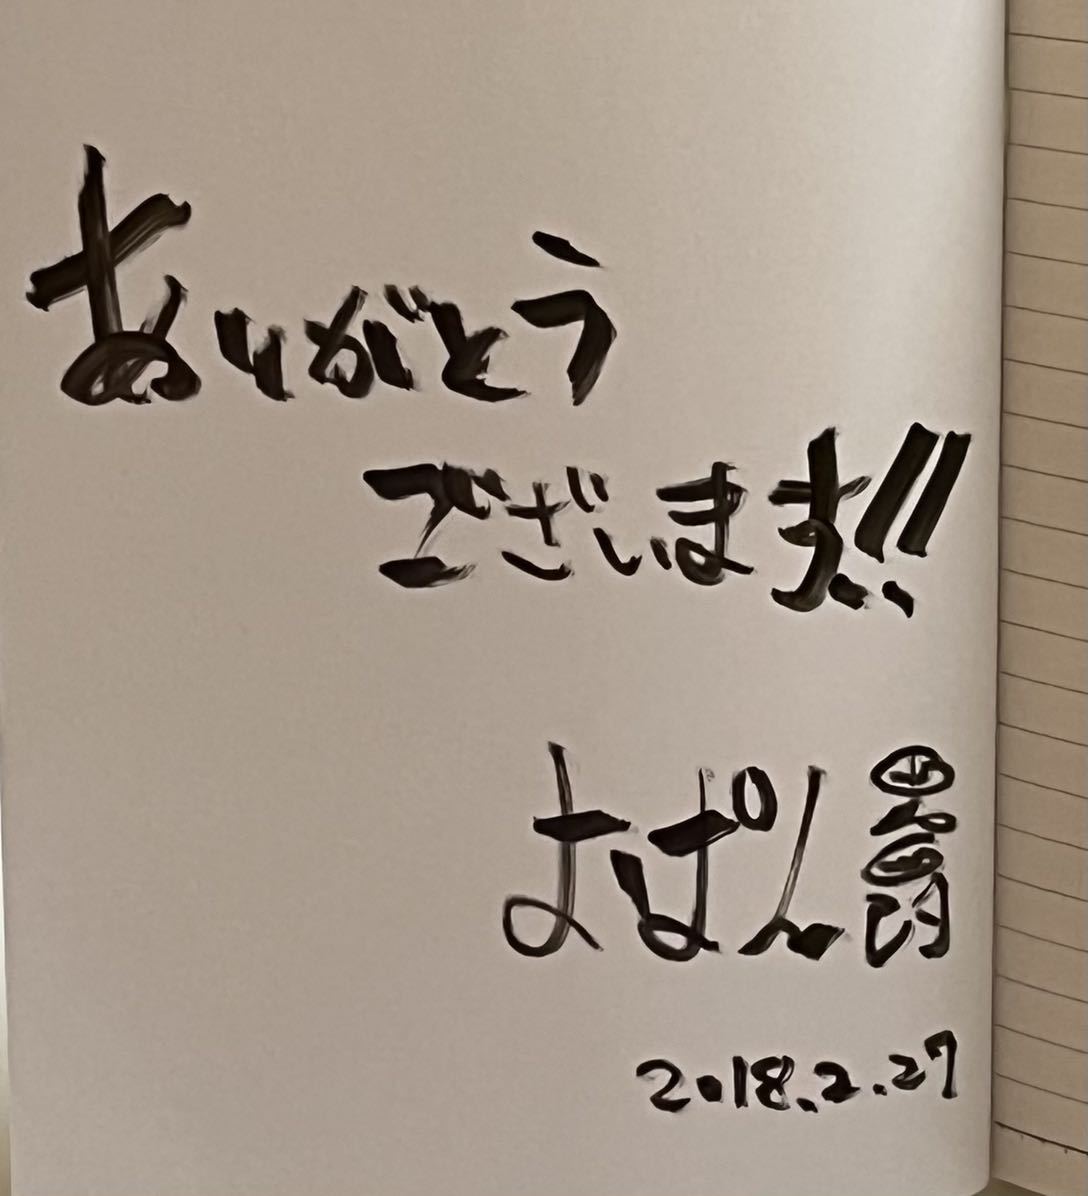 ありがとう
ございます!!
よぱん
2018.2.27